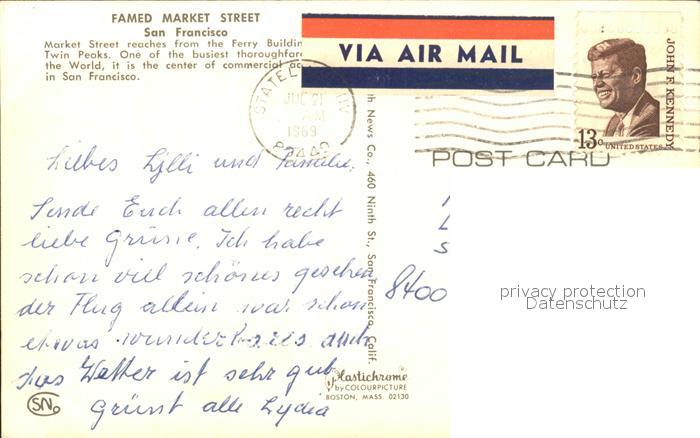 FAMED MARKET STREET
San Francisco
Market Street reaches from the Ferry Buildin
Twin Peaks. One of the busiest thoroughfar
the World, it is the center of commercial ac
in San Francisco.
VIA AIR MAIL
STATE
JUL 21
AM
1969
JOHN F. KENNEDY
13c UNITED STATES
POST CARD
Liebes Lylli und Familie,
Sende Euch allen recht
liebe Grüsse. Ich habe
schon viel schönes gesehen
der Flug allein war schon
etwas wunderbares auch
das Wetter ist sehr gut
Grüsst alle Lydia
th News Co., 460 Ninth St., San Francisco, Calif.
8400
privacy protection
Datenschutz
Plastichrome
by COLOURPICTURE
BOSTON, MASS. 02130
SNo